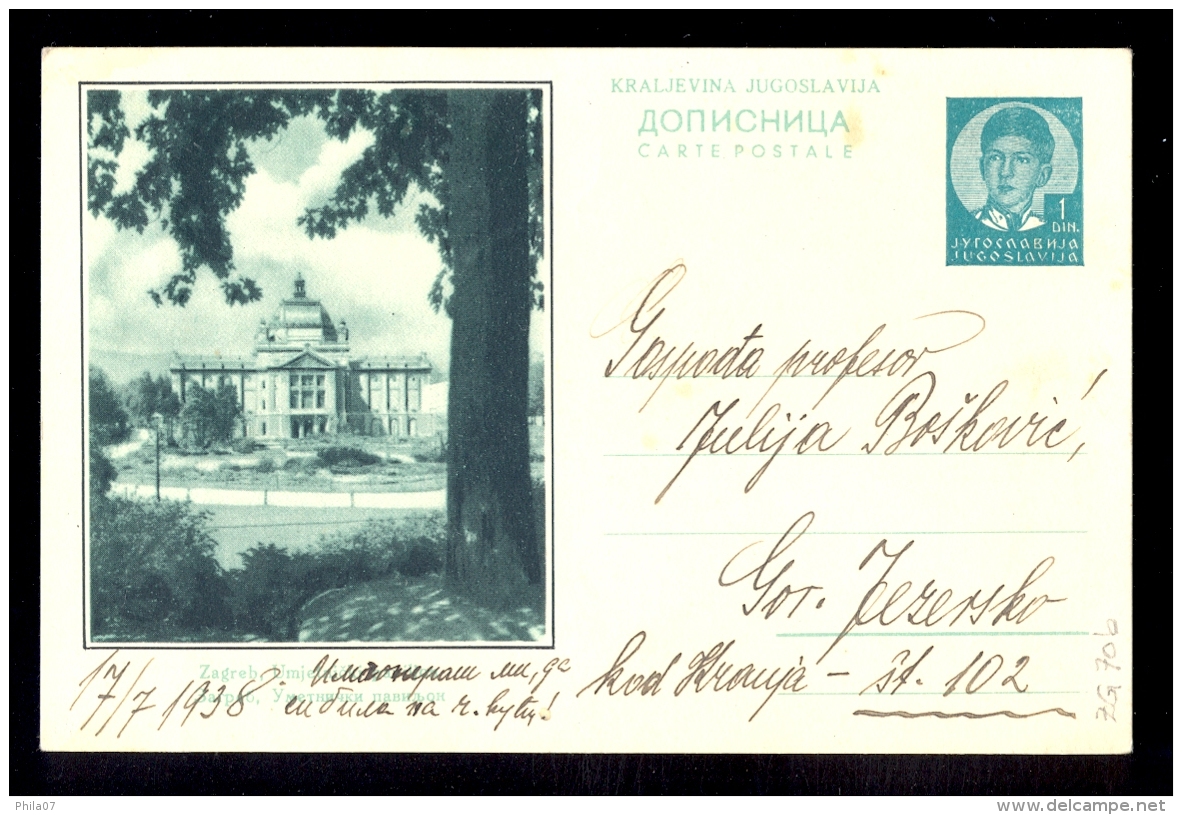 KRALJEVINA JUGOSLAVIJA
ДОПИСНИЦА
CARTE POSTALE
1
DIN.
ЈУГОСЛАВИЈА
JUGOSLAVIJA
Gospođa profesor
Julija Bošković,
Gor. Jezersko
kod Kranja - št. 102
Zagreb,
Загреб, Уметнички павиљон
17/7 1938
ми, да
си била на
ZG 706
Phila07
www.delcampe.net